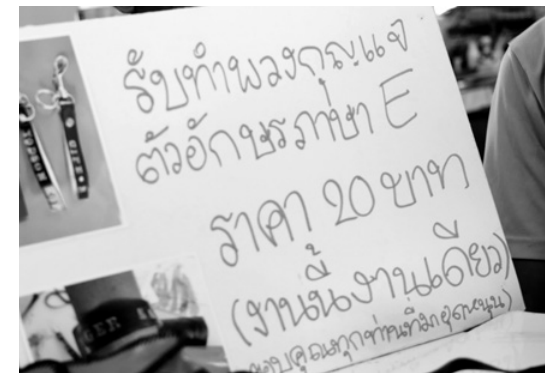 รับทำพวงกุญแจ
ตัวอักษรภาษา E
ราคา 20 บาท
(งานนี้งานเดียว)
ขอบคุณทุกท่านที่มาอุดหนุน)